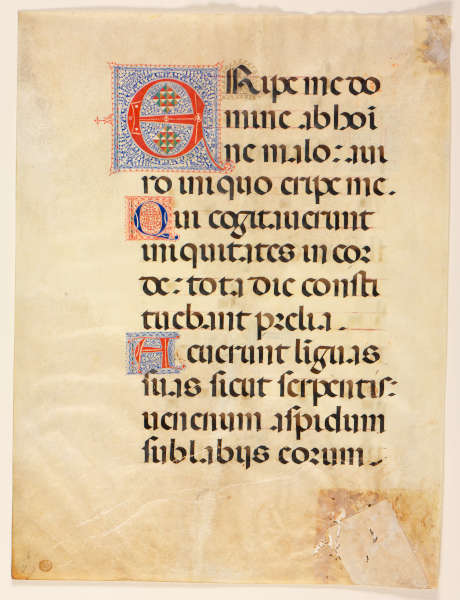 ERipe me do
mine ab hoi
ne malo: a ui
ro iniquo eripe me.
Qui cogitauerunt
iniquitates in cor
de: tota die consti
tuebant prelia.
Acuerunt liguas
suas sicut serpentis:
uenenum aspidum
sub labijs eorum.